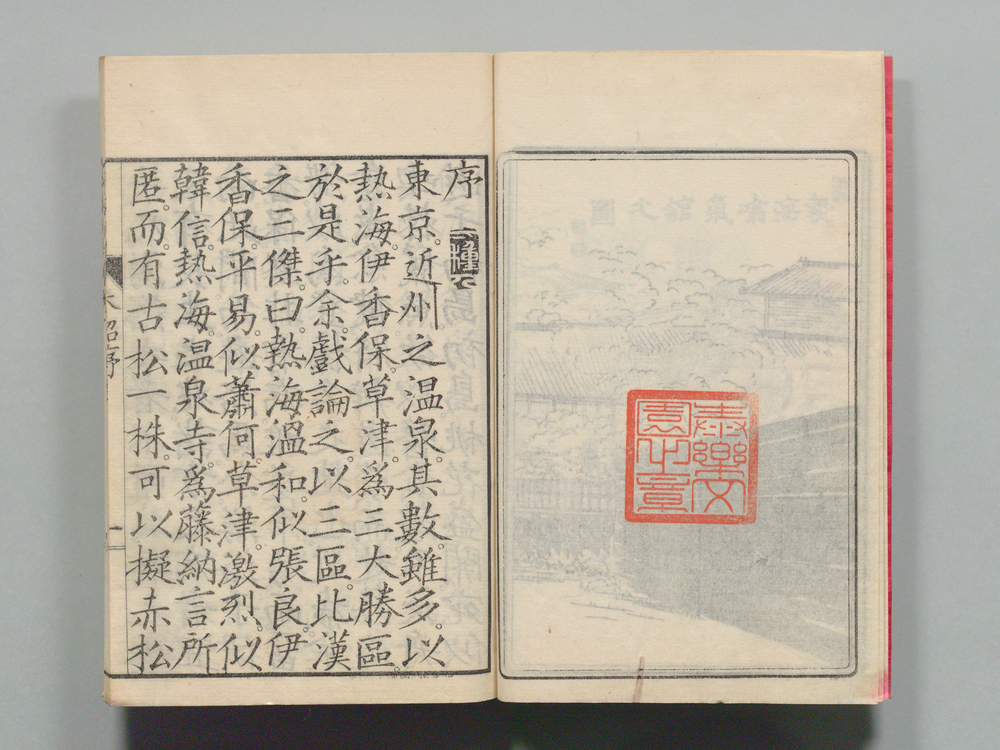 泰樂文
之章
序
東京。近州之温泉。其數雖多。以
熱海。伊香保。草津。爲三大勝區。
於是乎。余戲論之。以三區。比漢
之三傑。曰。熱海温和。似張良。伊
香保。平易。似蕭何。草津。激烈。似
韓信。熱海。温泉寺。爲藤納言所
匿。而有古松一株。可以擬赤松
序
一